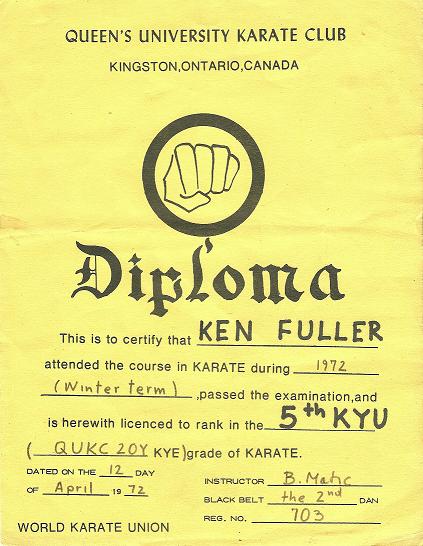 QUEEN'S UNIVERSITY KARATE CLUB
KINGSTON,ONTARIO,CANADA
Diploma
This is to certify that KEN FULLER
attended the course in KARATE during 1972
(Winter term) ,passed the examination,and
is herewith licenced to rank in the 5th KYU
( QUKC 20Y KYE)grade of KARATE.
DATED ON THE 12 DAY
OF April 19 72
INSTRUCTOR B. Matic
BLACK BELT the 2nd DAN
REG. NO. 703
WORLD KARATE UNION